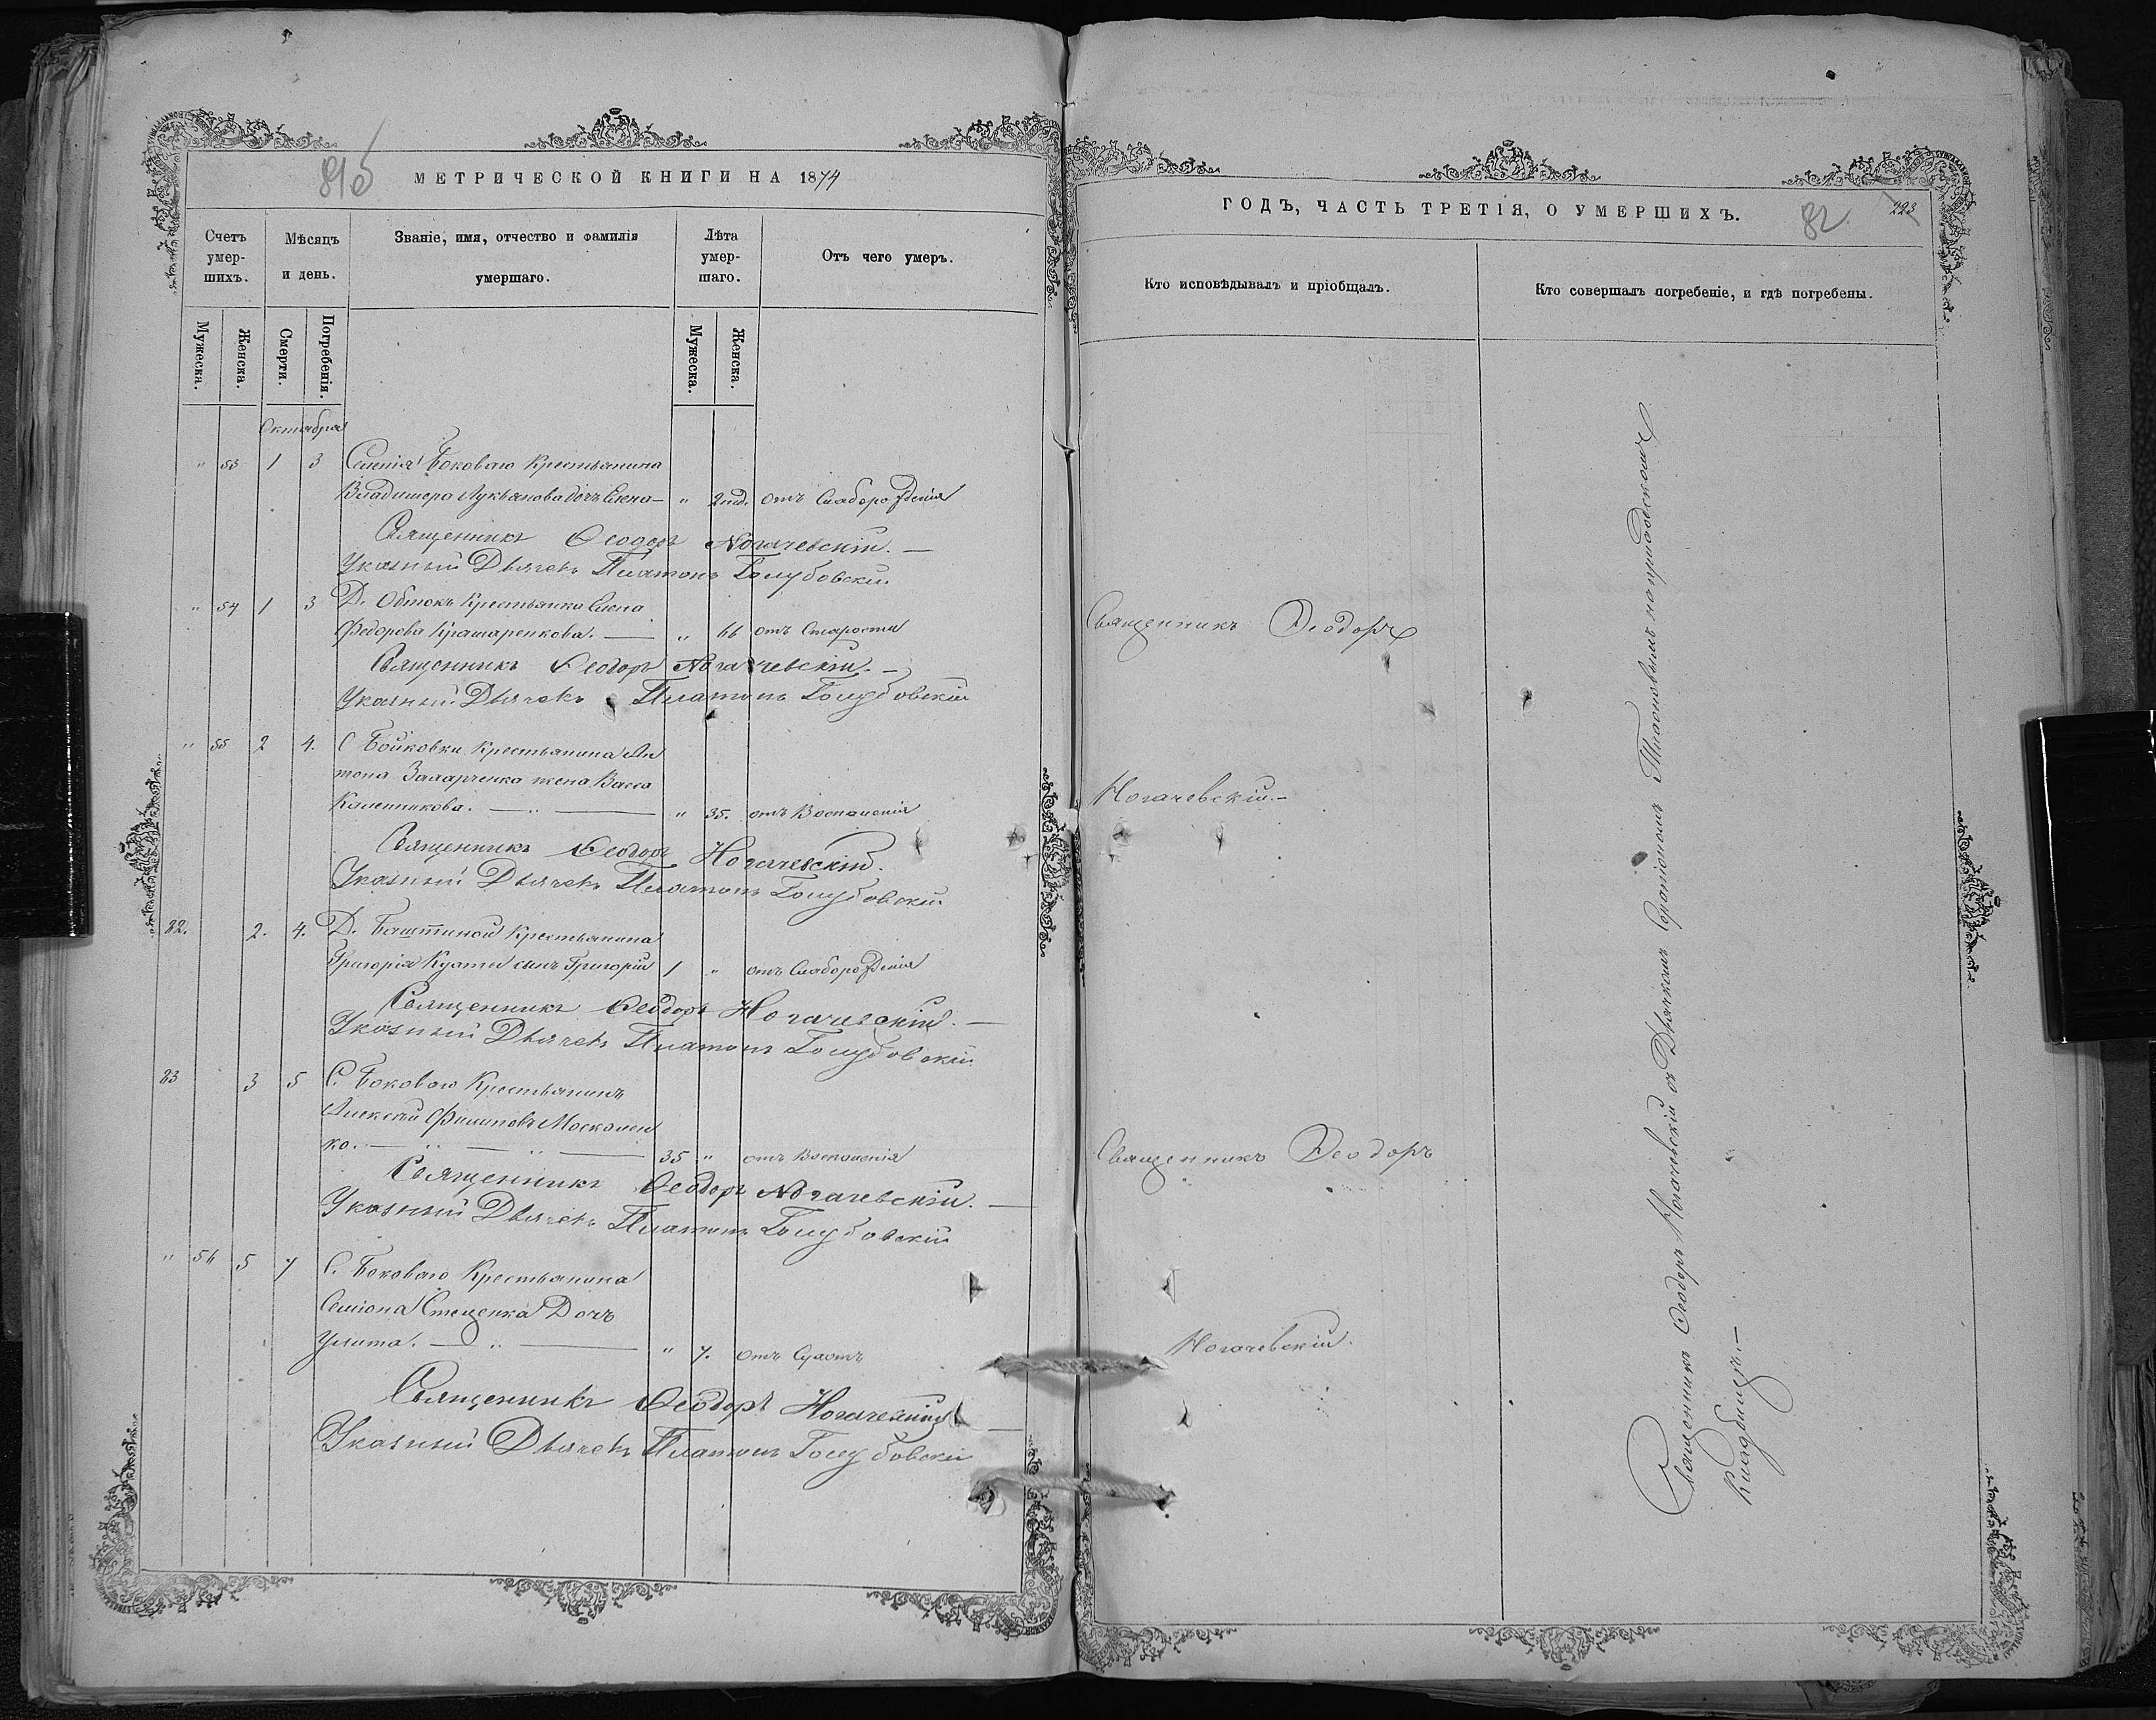 81б
МЕТРИЧЕСКОЙ КНИГИ НА 1874
Счетъ умер- шихъ.
Мѣсяцъ и день.
Званіе, имя, отчество и фамилія умершаго.
Лѣта умер- шаго.
Отъ чего умеръ.
Мужеска.
Женска.
Смерти.
Погребенія.
Мужеска.
Женска.
Октября
" 53 1 3 Селенія Боковаго Крестьянина
Владимера Лукьянова дочь Елена — " 2 нед. отъ Слаборожденія
Священникъ Ѳеодоръ Ногачевскій. —
Указный Дьячекъ Платонъ Голубовскій
" 54 1 3 Д. Обтокъ Крестьянка Елена
Федорова — " 66 отъ Старости
Священникъ Ѳеодоръ Ногачевскій. —
Указный Дьячекъ Платонъ Голубовскій
" 55 2 4. С Бойковки Крестьянина Ан
тона жена Васса
— " — " 35. отъ Воспаленія
Священникъ Ѳеодоръ Ногачевскій.
Указный Дьячекъ Платонъ Голубовскій
82. 2. 4. Д. Баштиной Крестьянина
Григорія сынъ Григорій 1 " отъ Слаборожденія
Священникъ Ѳеодоръ Ногачевскій. —
Указный Дьячекъ Платонъ Голубовскій
83 3 5 С. Боковаго Крестьянинъ
Алексѣй Филиповъ Москален
ко. — " — " — 35 " отъ Воспаленія
Священникъ Ѳеодоръ Ногачевскій. —
Указный Дьячекъ Платонъ Голубовскій
" 56 5 7 С. Боковаго Крестьянина
Семіона Стеценка Дочь
Улита. — " — " 7. отъ
Священникъ Ѳеодоръ Ногачевскій —
Указный Дьячекъ Платонъ Голубовскій
ГОДЪ, ЧАСТЬ ТРЕТІЯ, О УМЕРШИХЪ.
82
223
Кто исповѣдывалъ и пріобщалъ.
Кто совершалъ погребеніе, и гдѣ погребены.
Священникъ Ѳеодоръ
Ногачевскій. —
Священникъ Ѳеодоръ
Ногачевскій.
Священникъ Ѳеодоръ Ногачевскій съ Дьячкомъ Платоновымъ на приходскомъ
Кладбищѣ. —